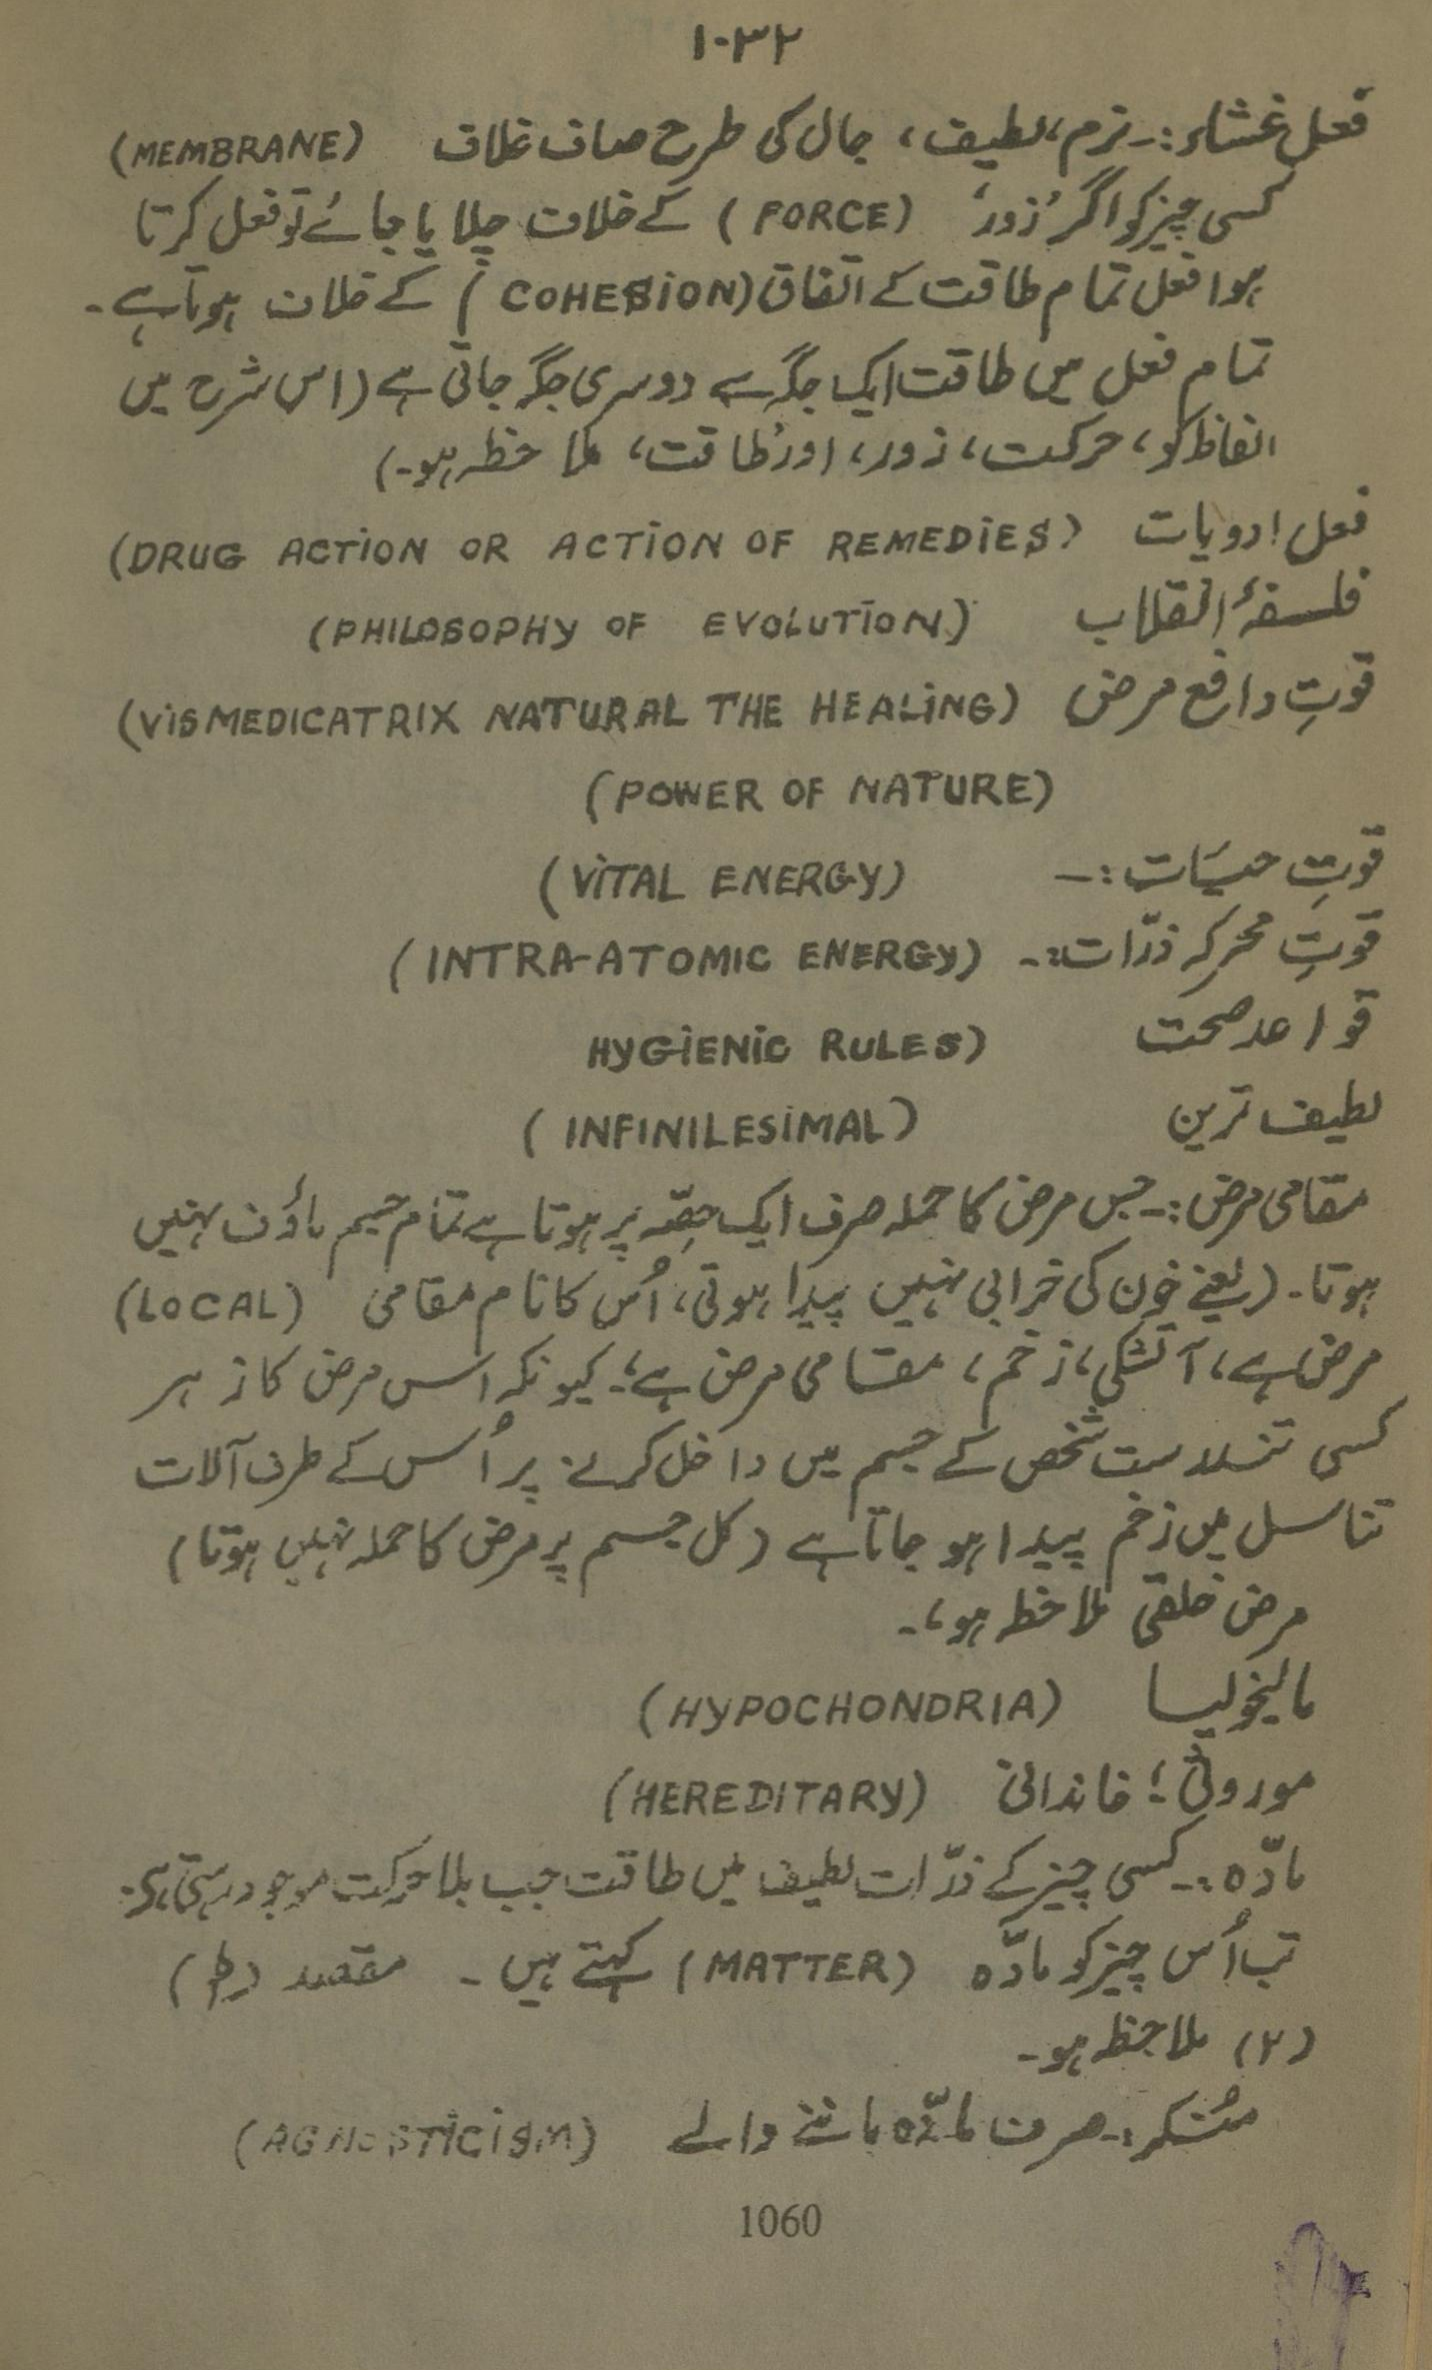 ۱۰۳۲
فعل غشاء :۔ نرم، لطیف، جال کی طرح صاف غلاف (MEMBRANE)
کسی چیز کو اگر 'زور' (FORCE) کے خلاف چلایا جائے تو فعل کرتا
ہوا فعل تمام طاقت کے اتفاق (COHESION) کے خلاف ہوتا ہے۔
تمام فعل میں طاقت ایک جگہ سے دوسری جگہ جاتی ہے (اس شرح میں
الفاظ کو، حرکت، زور، اور طاقت، ملاحظہ ہو۔)
فعل ادویات (DRUG ACTION OR ACTION OF REMEDIES)
فلسفۂ انقلاب (PHILOSOPHY OF EVOLUTION)
قوتِ دافع مرض (VISMEDICATRIX NATURAL THE HEALING)
(POWER OF NATURE)
قوتِ حیات :۔ (VITAL ENERGY)
قوتِ محرکہ ذرّات :۔ (INTRA-ATOMIC ENERGY)
قواعد صحت HYGIENIC RULES)
لطیف ترین (INFINILESIMAL)
مقامی مرض :۔ جس مرض کا حملہ صرف ایک حصّہ پر ہوتا ہے تمام جسم ماؤف نہیں
ہوتا۔ (یعنے خون کی خرابی نہیں پیدا ہوتی، اُس کا نام مقامی (LOCAL)
مرض ہے، آتشکی، زخم، مقامی مرض ہے؛ کیونکہ اس مرض کا زہر
کسی تندرست شخص کے جسم میں داخل کرنے پر اُس کے صرف آلات
تناسل میں زخم پیدا ہو جاتا ہے (کل جسم پر مرض کا حملہ نہیں ہوتا)
مرض خلقی ملاحظہ ہو،۔
مالیخولیا (HYPOCHONDRIA)
موروثی؛ خاندانی (HEREDITARY)
مادّہ :۔ کسی چیز کے ذرّات لطیف میں طاقت جب بلا حرکت موجود رہتی ہے۔
تب اُس چیز کو مادّہ (MATTER) کہتے ہیں ۔ مقصد
(۲) ملاحظہ ہو۔
مُنکر :۔ صرف مادّہ ماننے والے (AGNOSTICISM)
1060